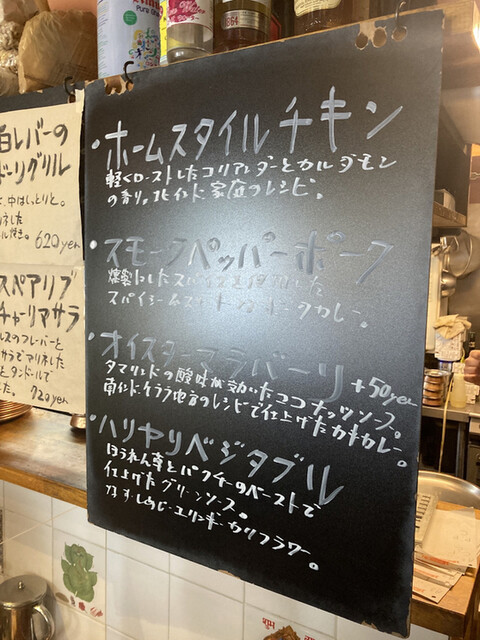 ・ホームスタイルチキン
軽くローストしたコリアンダーとカルダモン
の香り。北インド家庭のレシピ。
・スモークペッパーポーク
燻製にしたスパイスを使用した
スパイシー ポークカレー。
・オイスターマラバーリ +50yen
タマリンドの酸味が効いたココナッツソース。
南インド・ケララ地方のレシピで仕上げたカキカレー。
・ハリヤリベジタブル
ほうれん草とパクチーのペーストで
仕上げたグリーンソース。
ナス・しめじ・エリンギ・カリフラワー。
白レバーの
ーリグリル
、中はしっとりと。
620yen
スペアリブ
チャーリアサラ
フレーバーと
サラでマリネした
とタンドールで
720yen
1864